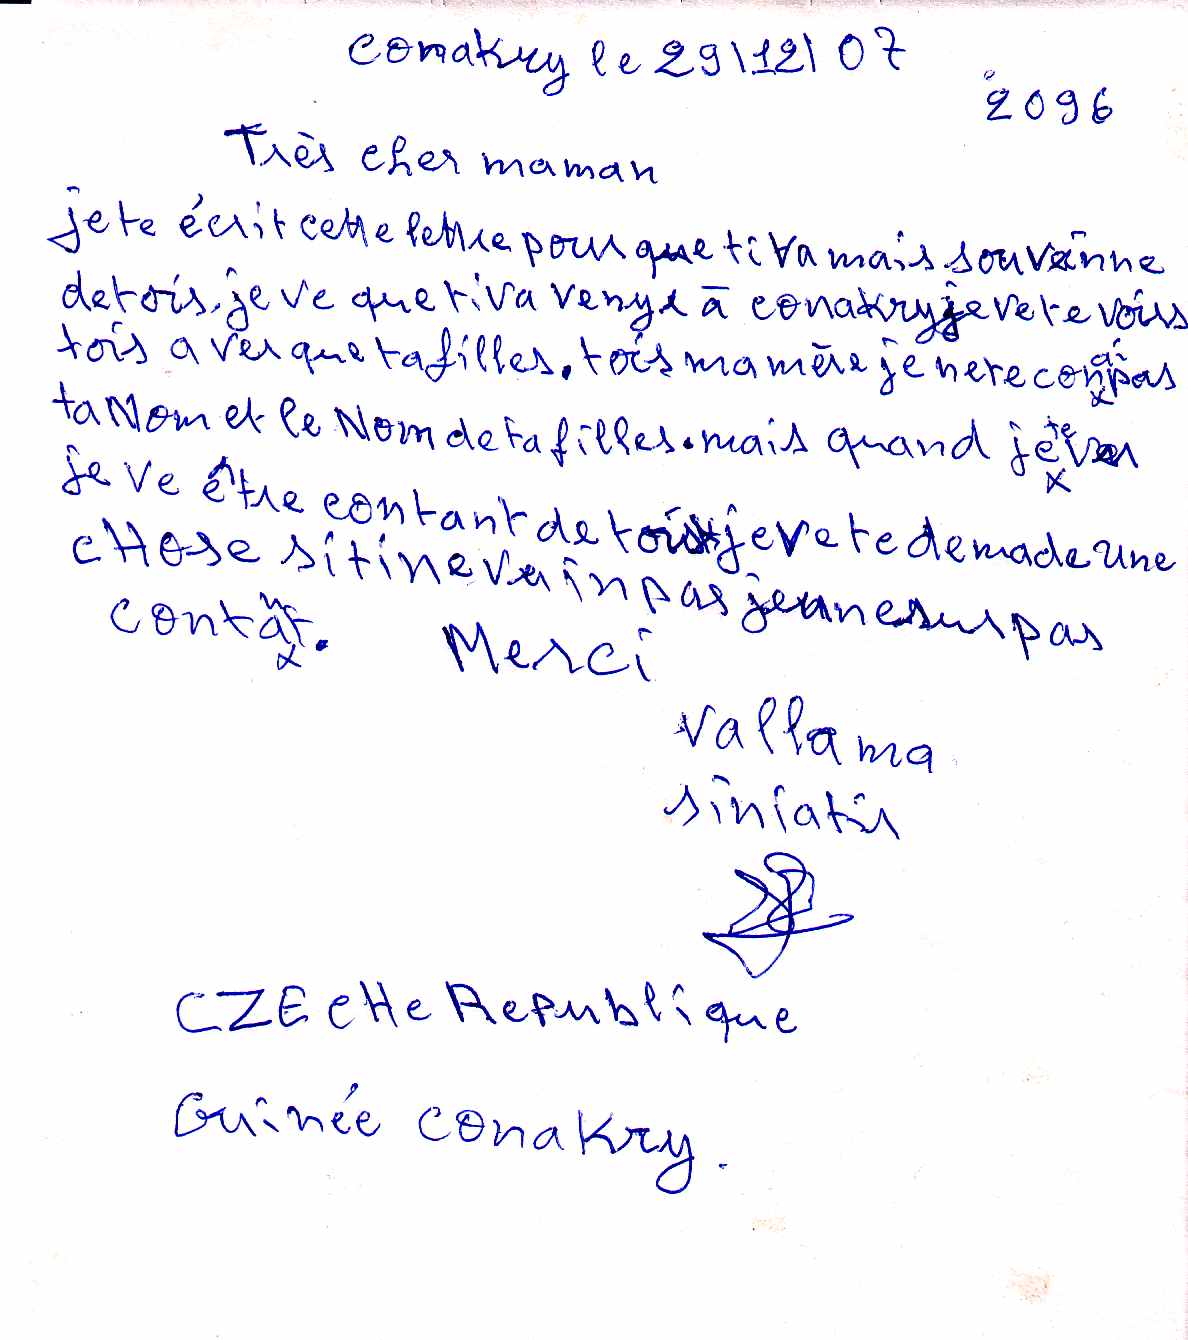 Conakry le 29\12\07
2096
Très cher maman
je te écrit cette lettre pour que ti va mais souvenne
de tois. je ve que ti va venye à conakry je ve te vois
tois aver que ta filles. tois ma mère je ne te conai pas
ta Nom et le Nom de ta filles. mais quand je te
je ve être contant de tois je ve te demade une
cHose si ti ne vein pas je une sur pas
contânt. Merci
vallama
siniatis
CZEcHe Republique
Guinée conakry.